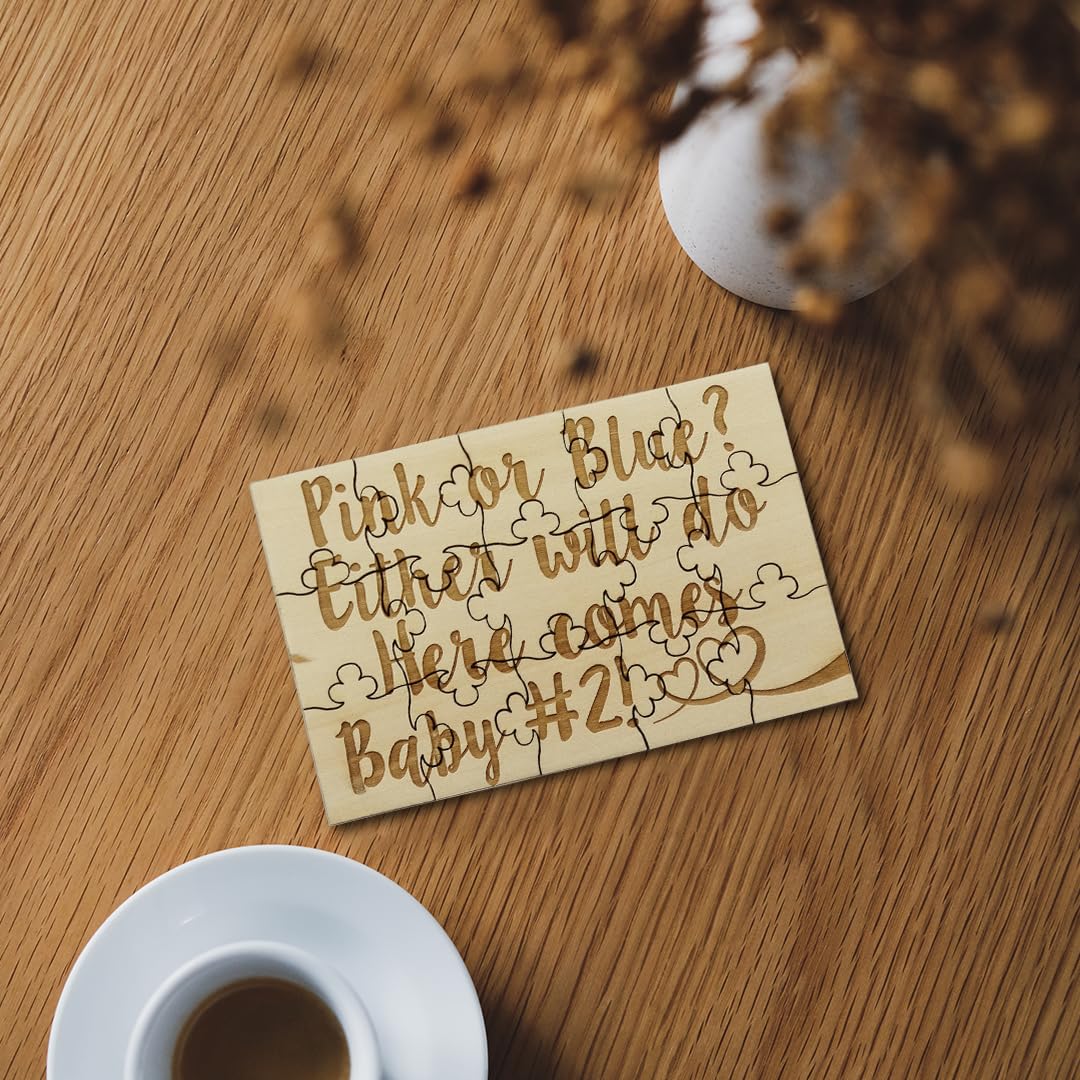 Pink or Blue?
Either will do
Here comes
Baby #2!